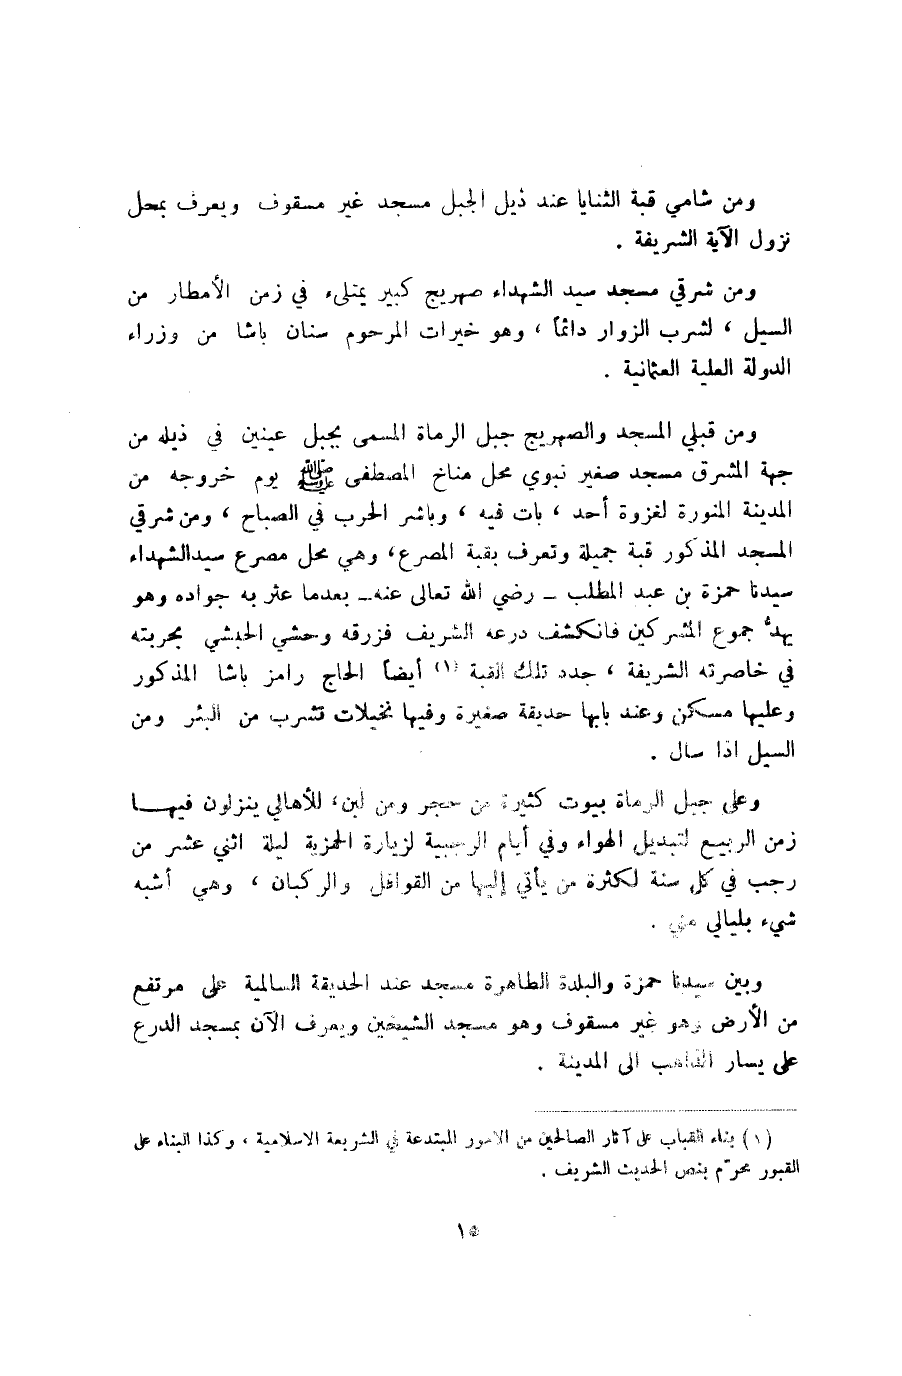 ومن شامي قبة الثنايا عند ذيل الجبل مسجد غير مسقوف ويعرف بمحل
نزول الآية الشريفة .
ومن شرقي مسجد سيد الشهداء صهريج كبير يمتلىء في زمن الأمطار من
السيل ، لشرب الزوار دائماً ، وهو خيرات المرحوم سنان باشا من وزراء
الدولة العلية العثمانية .
ومن قبلي المسجد والصهريج جبل الرماة المسمى بجبل عينين في ذيله من
جهة المشرق مسجد صغير نبوي محل مناخ المصطفى ﷺ يوم خروجه من
المدينة المنورة لغزوة أحد ، بات فيه ، وباشر الحرب في الصباح ، ومن شرقي
المسجد المذكور قبة جميلة وتعرف بقبة المصرع، وهي محل مصرع سيدالشهداء
سيدنا حمزة بن عبد المطلب – رضي الله تعالى عنه– بعدما عثر به جواده وهو
يهدُّ جموع المشركين فانكشف درعه الشريف فزرقه وحشي الحبشي بحربته
في خاصرته الشريفة ، جدد تلك القبة (١) أيضاً الحاج رامز باشا المذكور
وعليها مسكن وعند بابها حديقة صغيرة وفيها نخيلات تشرب من البئر ومن
السيل اذا سال .
وعلى جبل الرماة بيوت كثيرة من حجر ومن لبن، للأهالي ينزلون فيهـــا
زمن الربيع لتبديل الهواء وفي أيام الرجبية لزيارة الحمزية ليلة اثني عشر من
رجب في كل سنة لكثرة من يأتي إليها من القوافل والركبان ، وهي أشبه
شيء بليالي منى .
وبين سيدنا حمزة والبلدة الطاهرة مسجد عند الحديقة السالمية على مرتفع
من الأرض وهو غير مسقوف وهو مسجد الشيخين ويعرف الآن بمسجد الدرع
على يسار الذاهب الى المدينة .
(١) بناء القباب على آثار الصالحين من الامور المبتدعة في الشريعة الاسلامية ، وكذا البناء على
القبور محرّم بنص الحديث الشريف .
١٥